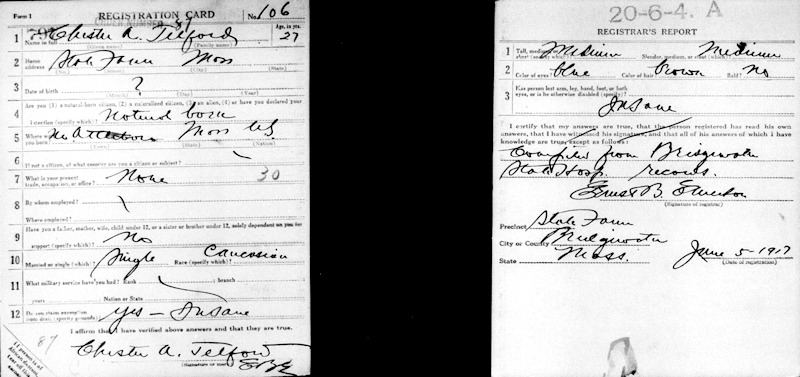 Form 1
REGISTRATION CARD
No. 106
1
Name in full Chester A. Telford
Age, in yrs. 27
(Given name) (Family name)
2
Home address State Farm Mass
(No.) (Street) (City) (State)
3
Date of birth ?
(Month) (Day) (Year)
4
Are you (1) a natural-born citizen, (2) a naturalized citizen, (3) an alien, (4) or have you declared your
intention (specify which)? Natural born
5
Where were you born? No. Attleboro Mass US
(Town) (State) (Nation)
6
If not a citizen, of what country are you a citizen or subject?
7
What is your present trade, occupation, or office? None 30
8
By whom employed?
Where employed?
9
Have you a father, mother, wife, child under 12, or a sister or brother under 12, solely dependent on you for
support (specify which)? No
10
Married or single (which)? Single Race (specify which)? Caucasian
11
What military service have you had? Rank ; branch
years Nation or State
12
Do you claim exemption from draft (specify grounds)? Yes – Insane
I affirm that I have verified above answers and that they are true.
87
Chester A. Telford
(Signature or mark)
EBE
20-6-4. A
REGISTRAR'S REPORT
1
Tall, medium, or short (specify which)? Medium Slender, medium, or stout (which)? Medium
2
Color of eyes? Blue Color of hair? Brown Bald? No
3
Has person lost arm, leg, hand, foot, or both
eyes, or is he otherwise disabled (specify)?
Insane
I certify that my answers are true, that the person registered has read his own
answers, that I have witnessed his signature, and that all of his answers of which I have
knowledge are true, except as follows:
Compiled from Bridgewater
State Hosp. records.
Ernest B. Emerson
(Signature of registrar)
Precinct State Farm
City or County Bridgewater
State Mass.
June 5-1917
(Date of registration)